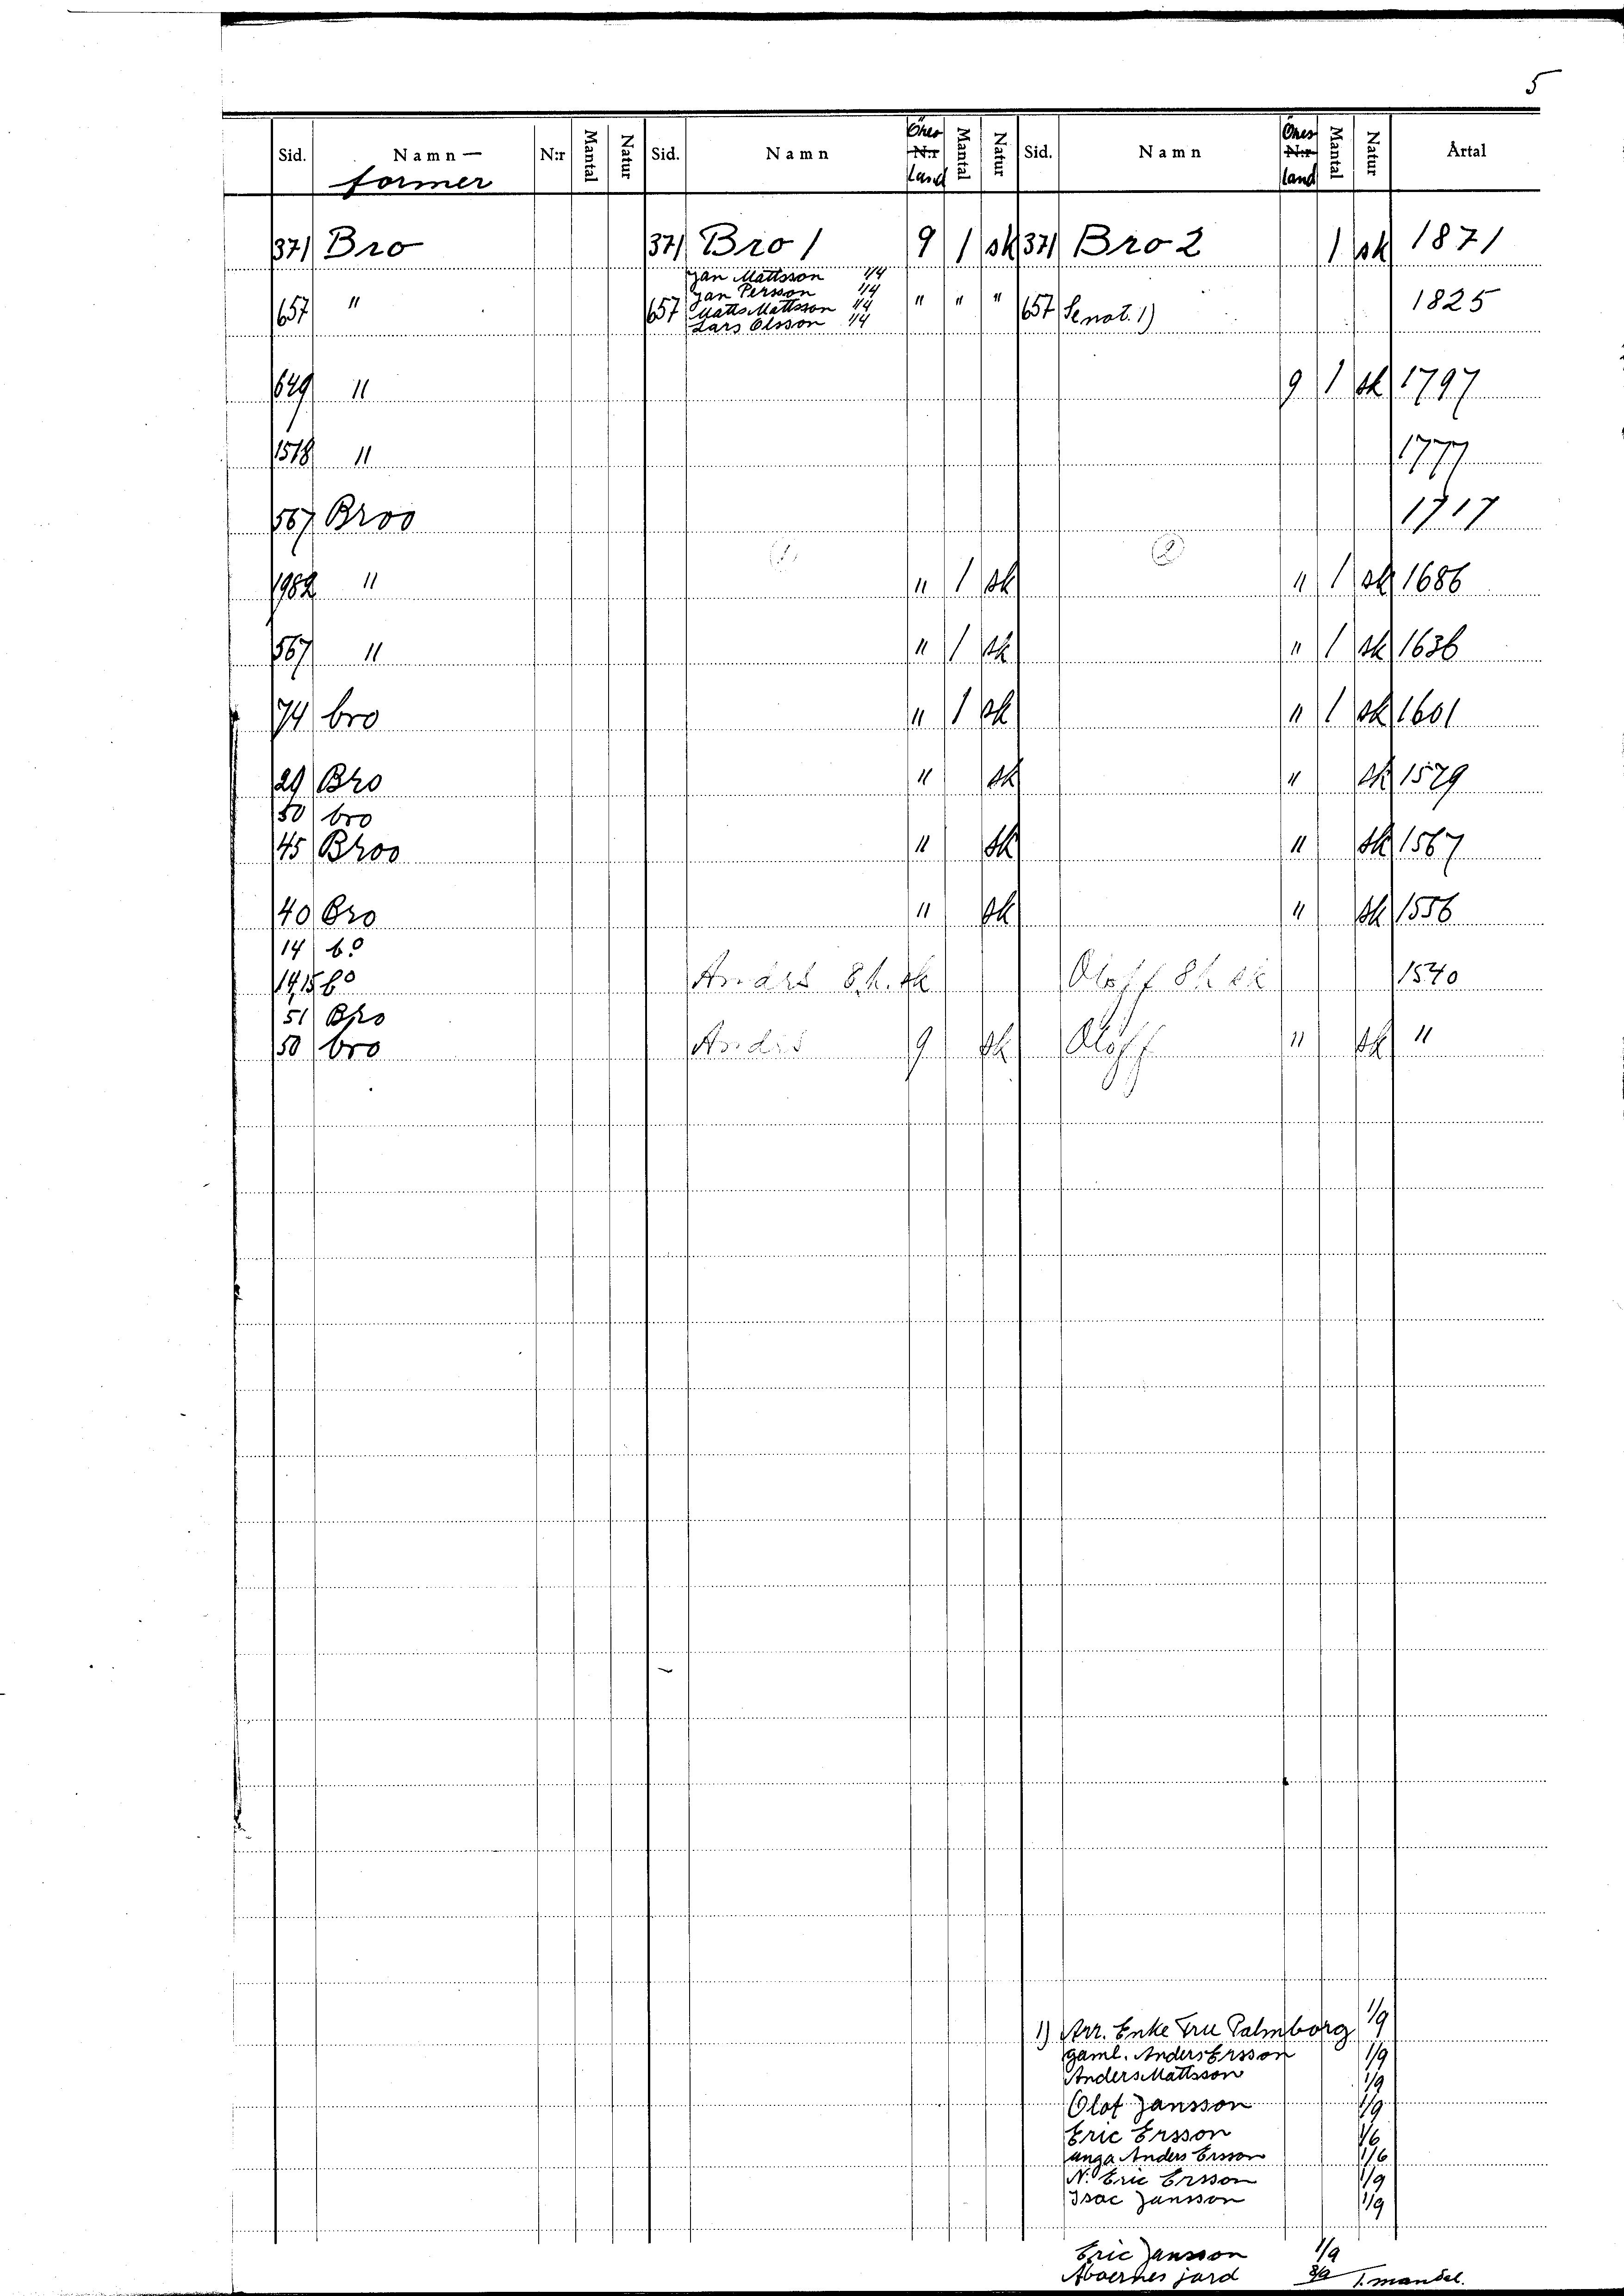 5
Sid. Namn — former N:r Mantal Natur Sid. Namn Öres N:r land Mantal Natur Sid. Namn Öres N:r land Mantal Natur Årtal
371 Bro 371 Bro 1 9 1 sk 371 Bro 2 1 sk 1871
Jan Mattsson 1/4
Jan Persson 1/4
657 " 657 Matts Mattsson 1/4 " " " 657 Se not. 1) 1825
Lars Olsson 1/4
629 " 9 1 sk 1797
1518 " 1777
567 Broo 1717
(1) (2)
1982 " " 1 sk " 1 sk 1686
567 " " 1 sk " 1 sk 1636
74 bro " 1 sk " 1 sk 1601
29 Bro " sk " sk 1579
50 bro
45 Broo " sk " sk 1567
40 Bro " sk " sk 1556
14 bo
Oloff 1540
51 Bro
50 bro 9 sk Oloff " sk "
1) Arr. Enke Fru Palmborg 1/9
gaml. Anders Ersson 1/9
Anders Mattsson 1/9
Olof Jansson 1/9
Eric Ersson 1/6
unga Anders Ersson 1/6
N. Eric Ersson 1/9
Isac Jansson 1/9
Eric Jansson 1/9
Aboernes jord 1. mandel.